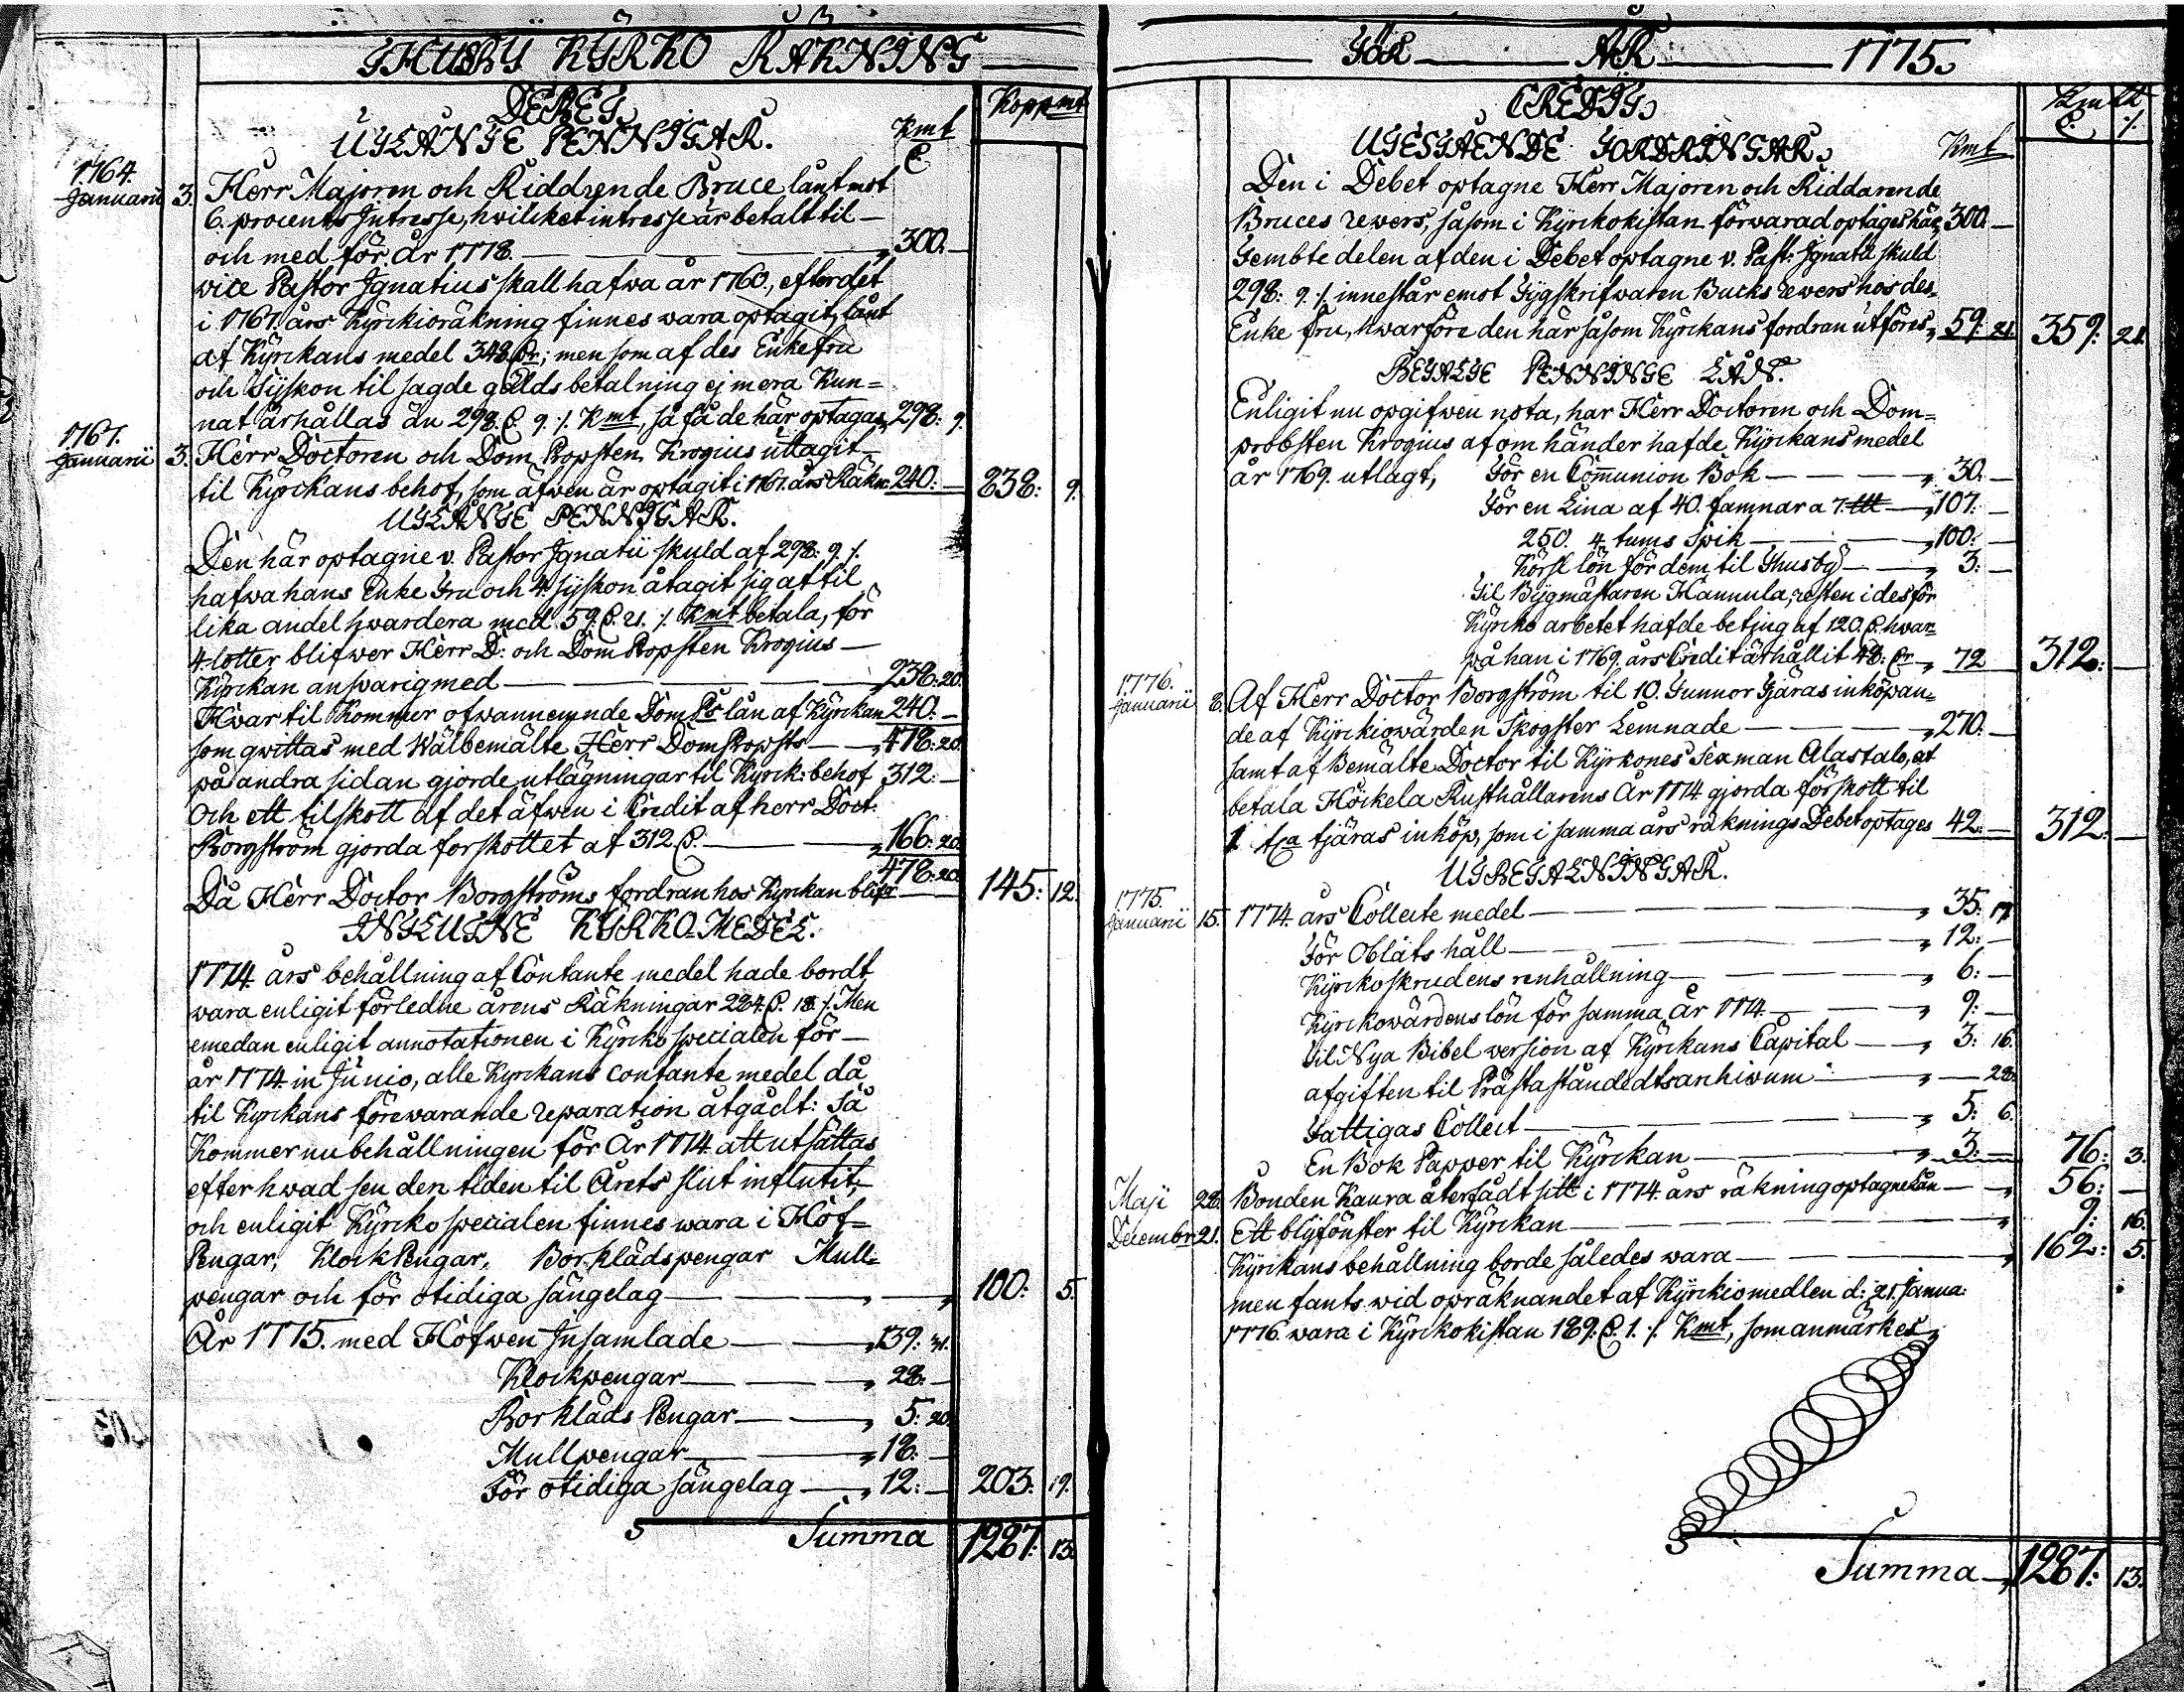 THUSBY KYRKO RÄKNING
DEBET.
Koppmt
UTLÄNTE PENNIGAR.
Kmt
1764.
Januarii 3. Herr Majoren och Riddrende Bruce länt mot
6. procents Intresse, hwilcket intresse är betalt til —
och med för år 1778. — — — — „ 300. —
vice Pastor Ignatius skall hafwa år 1760., efterdet
i 1761. års Kyrckioräkning finnes wara optagit, länt
af Kyrckans medel 348. Dr; men som af des Enkefru
och Syskon til sagde gälds betalning ej mera Kun=
nat ärhållas än 298. D. 9 ./. Kmt, så få de här optagas, 298: 9.
1761.
Januarii 3. Herr Doctoren och Dom Propsten Krogius uttagit —
til Kyrckans behof, som äfwen är optagit i 1761. års Räkn: 240: — 838: 9.
UTLÄNTE PENNIGAR.
Den här optagne v. Pastor Ignatii skuld af 298: 9 ./.
hafwa hans enke Fru och 4 syskon åtagit sig at til
lika andel hwardera med 59. D. 21. ./. Kmt betala, för
4 lotter blifwer Herr D: och Dom Propsten Krogius —
Kyrckan answarig med — — — „ 238: 20.
Hvar til Kommer ofwannemnde Dom Ps lån af Kyrckan 240: —
som qwittas med Wälbemälte Herr DomPropsts — „ 478: 20.
på andra sidan gjorde utlägningar til Kyrck: behof 312: —
Och ett tilskott af det äfwen i Credit af herr Doct:
Borgström gjorda forskottet af 312 D. — — „ 166: 20.
478: 20.
Då Herr Doctor Borgströms fordran hos Kyrckan blifr — 145: 12.
INFLUTNE KYRKO-MEDEL.
1774. års behållning af Contante medel hade bordt
wara enligit förledne årens Räkningar 224. D. 18 ./. Men
emedan enligit annotationen i Kyrcko specialen för —
år 1774. in Junio, alle Kyrckans contante medel då
til Kyrckans förewarande reparation åtgådt: Så
Kommer nu behållningen för År 1774. att utsättas
efter hwad sen den tiden til Årets slut influtit,
och enligit Kyrcko specialen finnes wara i Hof=
Pengar, KlockPengar, Borklädspengar Mull=
pengar och för otidiga sängelag — — „ 100: 5.
År 1775. med Hofwen Insamlade — — „ 139: 31.
Klockpengar — — „ 28: —
Borkläds Pengar — — „ 5: 20.
Mullpengar — — „ 18: —
För otidiga sängelag — „ 12: — 203: 19.
Summa 1287: 13.
FÖR ÅR 1775.
CREDIT.
Kmtt
D. ./.
UTESTÅENDE FORDRINGAR.
Kmt
Den i Debet optagne Herr Majoren och Riddarende
Bruces revers, såsom i Kyrckokistan förwarad optages här, 300. —
Fembte delen af den i Debet optagne v. Past: Ignatii skuld
298: 9 ./. innestår emot Tygskrifwaren Bucks revers hos des
Enke fru, hwarföre den här såsom Kyrckans fordran utföres „ 59: 21. 359: 21.
BETALTE PENNINGE LÅN.
Enligit nu opgifwen nota, har Herr Doctoren och Dom=
probsten Krogius af om händer hafde Kyrckans medel
år 1769. utlagt, För en Communion Bok — — „ 30. —
För en Lina af 40. famnar a 7. ttt — „ 107. —
250. 4. tums Spik — — „ 100: —
Körsl lön för dem til Thusby — — „ 3: —
Til Bygmästaren Hannula, resten i des för
Kyrcko arbetet hafde beting af 120. D. hwar
på han i 1769. års Credit ärhållit 48: Dr „ 72 — 312: —
1776.
Januarii 2. Af Herr Doctor Borgström til 10. Tunnor Tjäras inköpan=
de af Kyrckiowärden Skogster Lemnade — — „ 270. —
samt af Bemälte Doctor til Kyrkones Sexman Alastalo, at
betala Höckela Rusthållarens År 1774 gjorda förskott til
1 tna tjäras inköp, som i samma års räknings Debet optages 42: — 312: —
UTBETALNINGAR.
1775.
Januarii 15. 1774. års Collecte medel — — — „ 35: 17.
För Oblats håll — — — „ 12: —
Kyrckoskrudens renhållning — — — „ 6: —
Kyrckowärdens lön för samma År 1774. — — „ 9: —
Til Nya Bibel version af Kyrckans Capital — „ 3: 16.
afgiften til Prästaståndedts archivum — „ — 28.
Fattigas Collect — — — „ 5: 6.
En Bok Papper til Kyrckan — — „ 3: — 76: 3.
Maji 28. Bonden Kaura återfådt sitt i 1774. års räkning optagne Lån — „ 56: —
Decembr: 21. Ett blyfönster til Kyrckan — — — „ 9: 16.
Kyrckans behållning borde således wara — — — „ 162: 5.
men fants wid opräknandet af Kyrckiomedlen d: 21. Janua:
1776. wara i Kyrckokistan 189: D. 1. ./. Kmt, som anmärkes
Summa — „ 1287: 13.